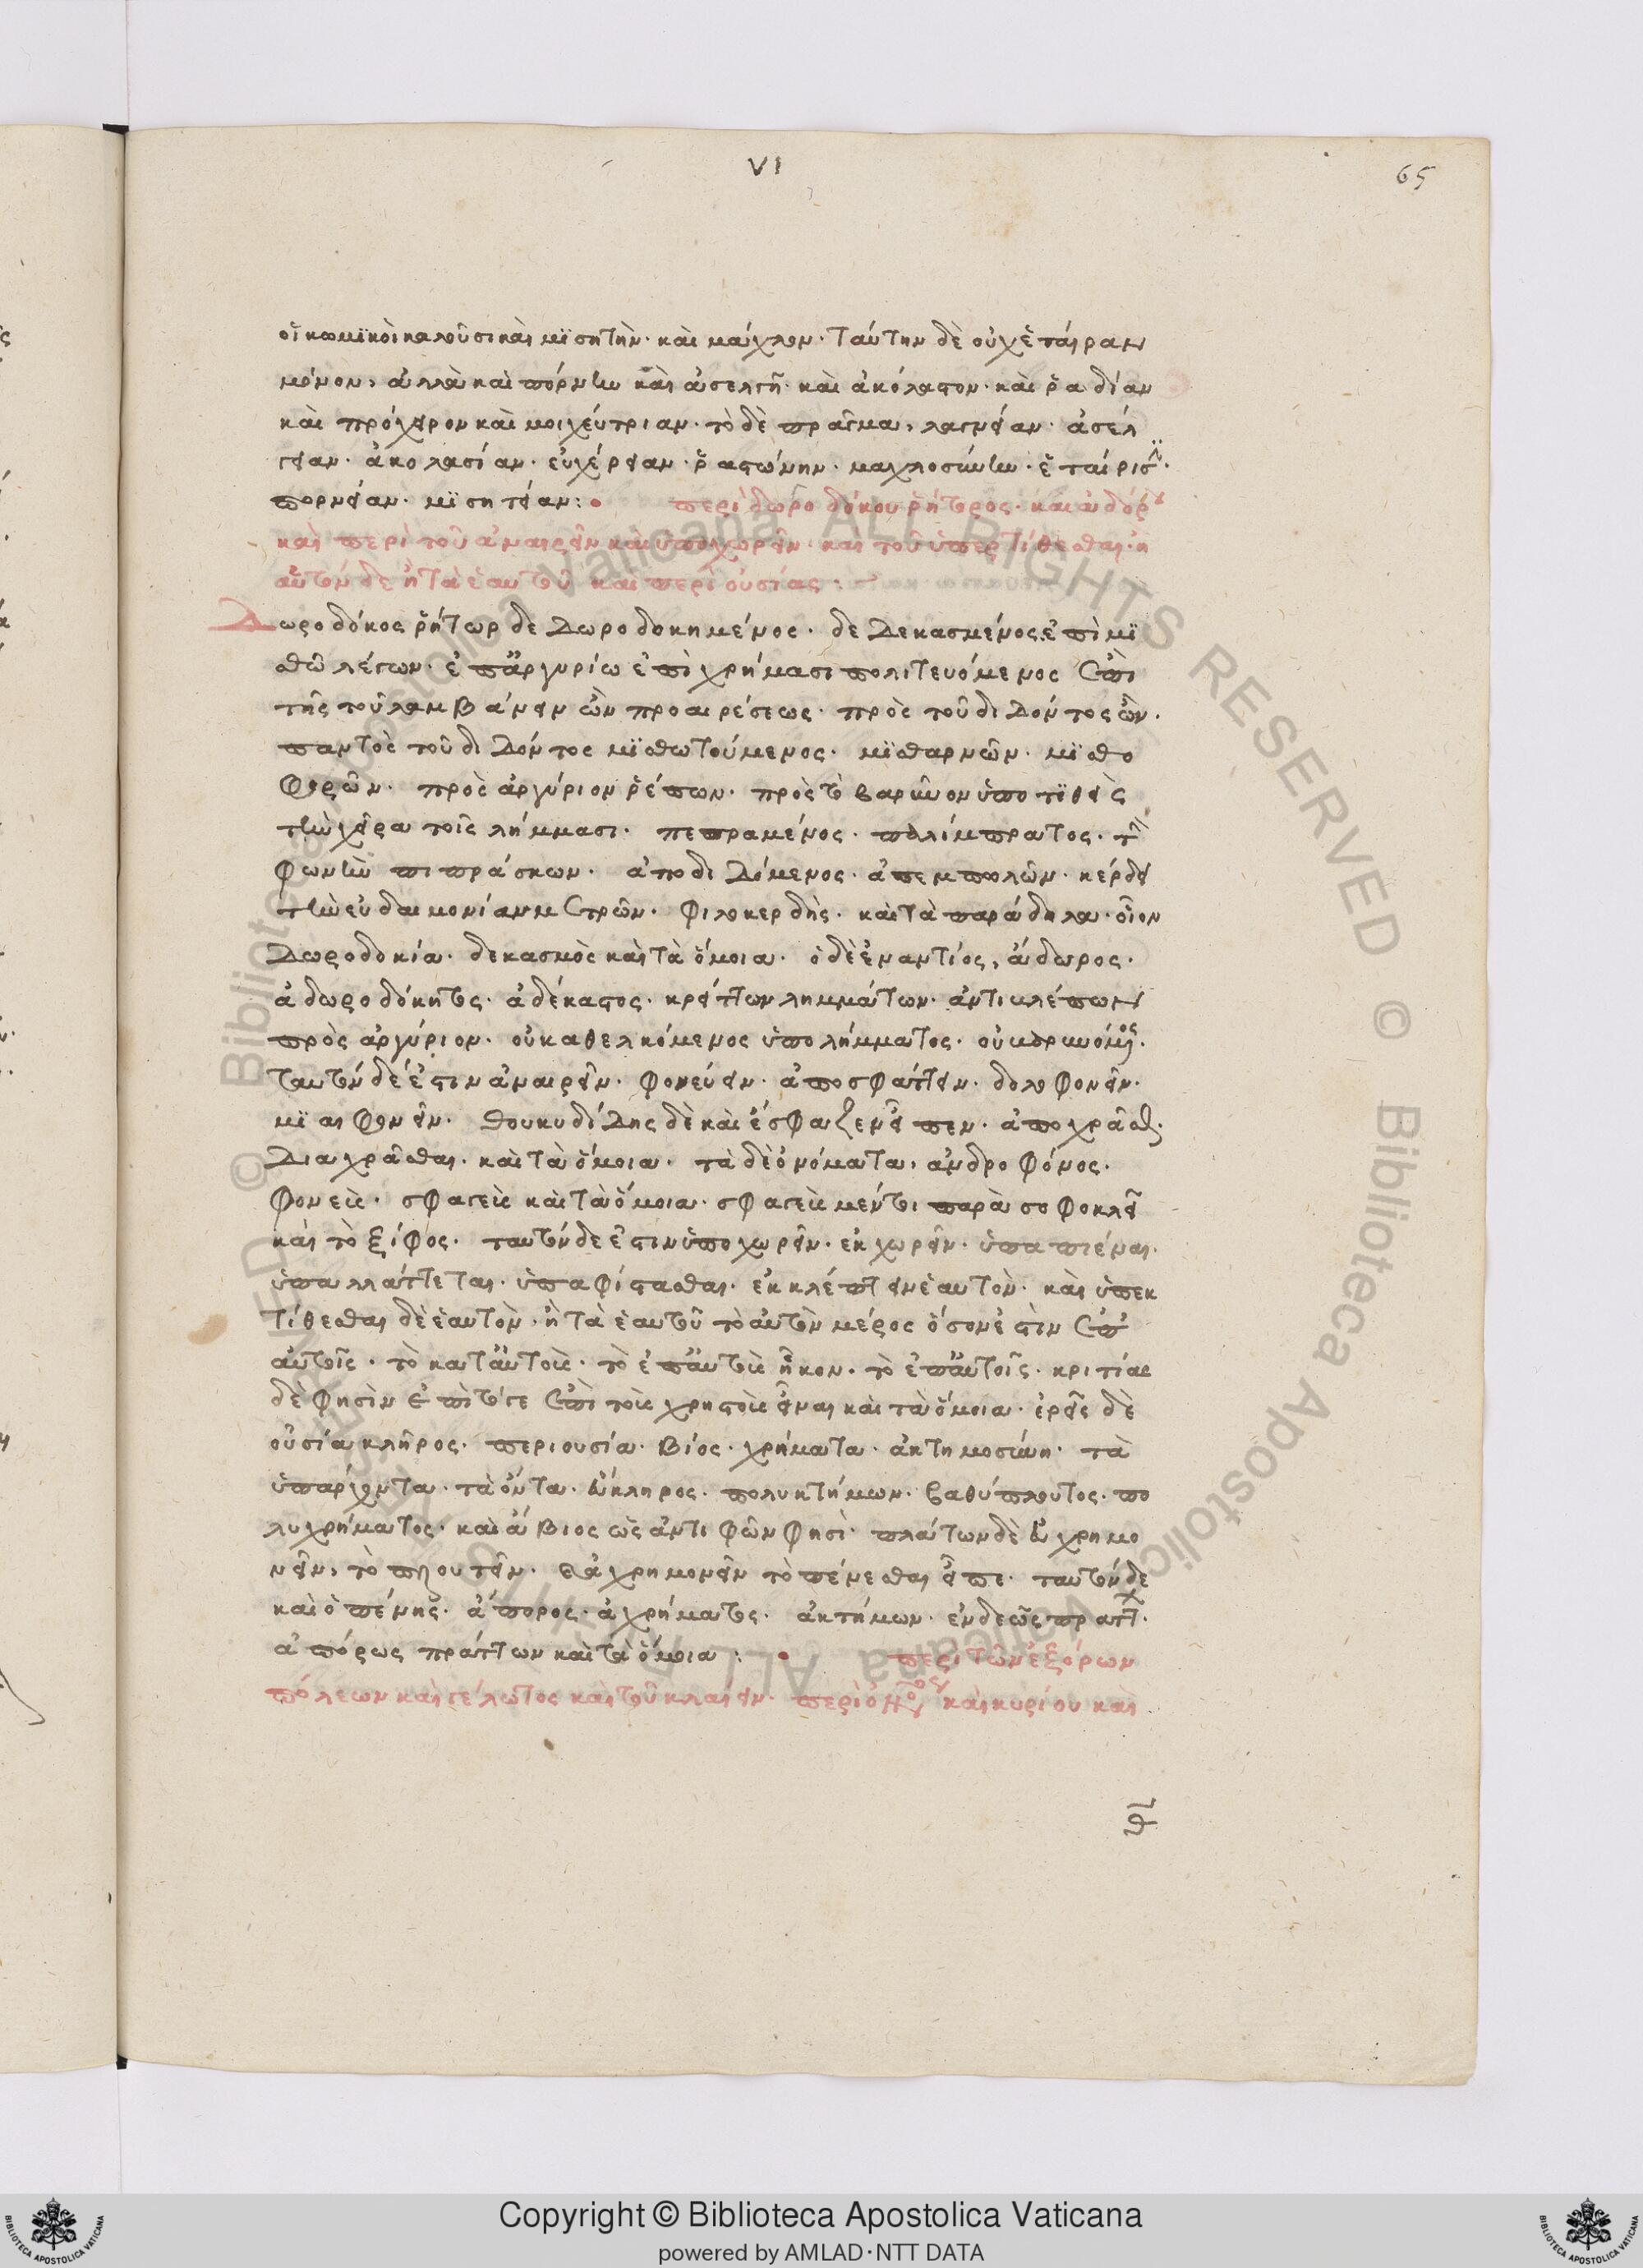 VI
65
οἱ κωμϊκοὶ καλοῦσι καὶ μϊσητὴν· καὶ μάχλον· ταύτην δὲ οὐχ ἑταίραν
μόνον, ἀλλὰ καὶ πόρνην καὶ ἀσελγῆ· καὶ ἀκόλαστον· καὶ ῥαδίαν
καὶ πρόχειρον καὶ μοιχεύτριαν· τὸ δὲ πρᾶγμα, λαγνείαν· ἀσέλ
γειαν· ἀκολασίαν· εὐχέρειαν· ῥαστώνην· μαχλοσύνην· ἑταίρισιν·
πορνείαν· μϊσητείαν:
περὶ δωροδόκου ῥήτορος· καὶ ἀδώρου
καὶ περὶ τοῦ ἀναιρεῖν καὶ ὑποχωρεῖν· καὶ τοῦ ὑπερτίθεσθαι· ἢ
αὑτόν δε ἢ τὰ ἑαυτοῦ καὶ περὶ οὐσίας:
Δωροδόκος ῥήτωρ δεδωροδοκημένος· δεδεκασμένος· ἐπὶ μϊ
σθῶ λέγων· ἐπ' ἀργυρίω ἐπὶ χρήμασι πολιτευόμενος ἐπὶ
τῆς τοῦ λαμβάνειν ὢν προαιρέσεως· πρὸς τοῦ διδόντος ὤν·
παντὸς τοῦ διδόντος μϊσθωτούμενος· μϊσθαρνῶν· μϊσθο
φορῶν· πρὸς ἀργύριον ῥέπων· πρὸς τὸ βαρῦνον ὑποτϊθεὶς
τὴν χεῖρα τοῖς λήμμασι· πεπραμένος· παλίμπρατος· τὴν
φωνὴν πιπράσκων· ἀποδιδόμενος· ἀπεμπολῶν· κέρδει
τὴν εὐδαιμονίαν μετρῶν· φιλοκερδής· καὶ τὰ παράδηλα· οἷον
δωροδοκία· δεκασμὸς καὶ τὰ ὅμοια· ὁ δὲ ἐναντίος, ἄδωρος·
ἀδωροδόκητος· ἀδέκαστος· κρείττων λημμάτων· ἀντιβλέπων
πρὸς ἀργύριον· οὐ καθελκόμενος ὑπο λήμματος·
ταυτόν δέ ἐστιν ἀναιρεῖν· φονεύειν· ἀποσφάττειν· δολοφονεῖν·
μϊαιφονεῖν· Θουκυδίδης δὲ καὶ ἔσφαζεν εἶπεν· ἀποχρᾶσθαι·
διαχρᾶσθαι· καὶ τὰ ὅμοια· τὰ δὲ ὀνόματα, ἀνδροφόνος·
φονεὺς· σφαγεὺς καὶ τὰ ὅμοια· σφαγεὺς μέντοι παρὰ σοφοκλεῖ
καὶ τὸ ξίφος· ταυτόν δε ἐστιν ὑποχωρεῖν· ἐκχωρεῖν· ὑπαπιέναι·
ὑπαλλάττεται· ὑπαφίστασθαι· ἐκκλέπτειν ἑαυτὸν· καὶ ὑπεκ
τίθεσθαι δὲ ἑαυτὸν· ἢ τὰ ἑαυτοῦ τὸ αὐτὸν μέρος ὅσον ἐστὶν ἐπ'
αὐτοῖς· τὸ κατ' αὐτοὺς· τὸ ἐπ' αὐτοὺς ἧκον· τὸ ἐπ' αὐτοῖς· κριτίας
δὲ φησὶν ἐπὶ τότε ἐπὶ τοὺς χρηστοὺς εἶναι καὶ τὰ ὅμοια· ἐρεῖς δὲ
οὐσία κλῆρος· περιουσία· βίος· χρήματα· ἀκτημοσύνη· τὰ
ὑπάρχοντα· τὰ ὄντα· εὔκληρος· πολυκτήμων· βαθύπλουτος· πο
λυχρήματος· καὶ ἄβιος ὡς ἀντιφῶν φησὶ· πλάτων δὲ εὐχρημο
νεῖν, τὸ πλουτεῖν· ἀχρημονεῖν τὸ πένεσθαι εἶπε· ταυτόν δε
καὶ ὁ πένης· ἄπορος· ἀχρήματος· ἀκτήμων· ἐνδεῶς πράττων·
ἀπόρως πράττων καὶ τὰ ὅμοια:
περὶ τῶν ἐξόρων
πόλεων καὶ γέλωτος καὶ τοῦ κλαίειν· περὶ καὶ κυρίου καὶ
Copyright © Biblioteca Apostolica Vaticana
powered by AMLAD·NTT DATA